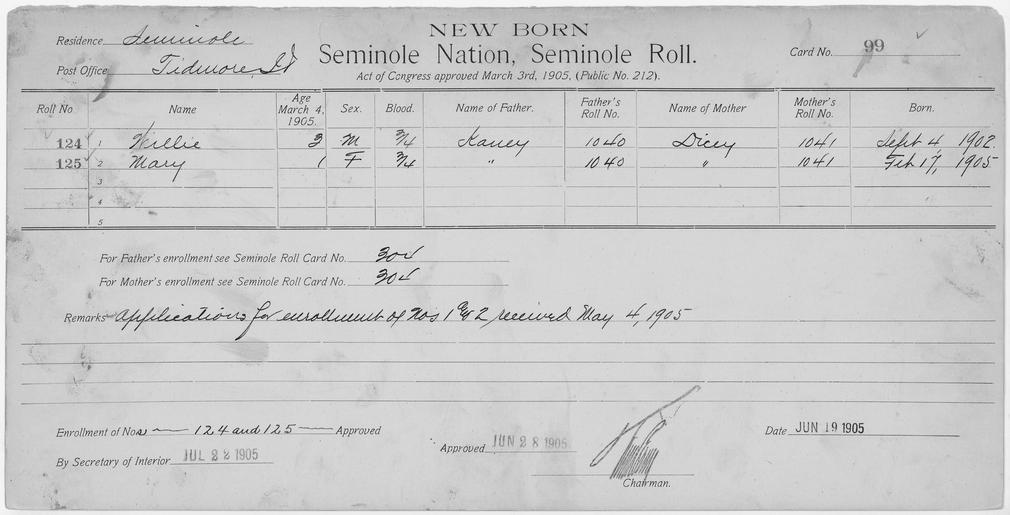 NEW BORN
Residence Seminole
Seminole Nation, Seminole Roll.
Card No. 99
Post Office Tidmore I T
Act of Congress approved March 3rd, 1905, (Public No. 212).
Roll No Name Age March 4, 1905. Sex. Blood. Name of Father. Father's Roll No. Name of Mother Mother's Roll No. Born.
124 1 Willie 3 M 3/4 Kaney 1040 Dicey 1041 Sept 4, 1902.
125 2 Mary 1 F 3/4 " 1040 " 1041 Feb 17, 1905
3
4
5
For Father's enrollment see Seminole Roll Card No. 304
For Mother's enrollment see Seminole Roll Card No. 304
Remarks Applications for enrollment of Nos 1 & 2, received May 4, 1905
Enrollment of Nos 124 and 125 Approved
By Secretary of Interior JUL 22 1905
Approved JUN 28 1905
Chairman.
Date JUN 19 1905